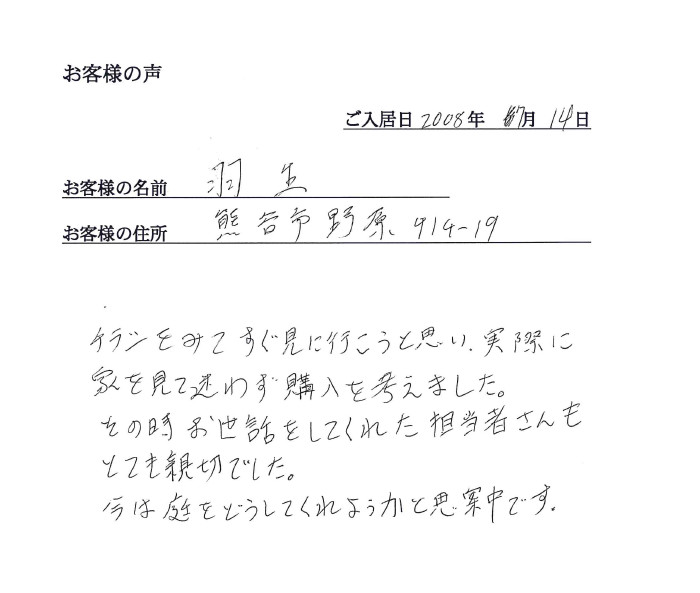 お客様の声
ご入居日 2008年 7月 14日
お客様の名前 羽生
お客様の住所 熊谷市野原 914-19
チラシをみてすぐ見に行こうと思い、実際に
家を見て迷わず購入を考えました。
その時お世話をしてくれた担当者さんも
とても親切でした。
今は庭をどうしてくれようかと思案中です。